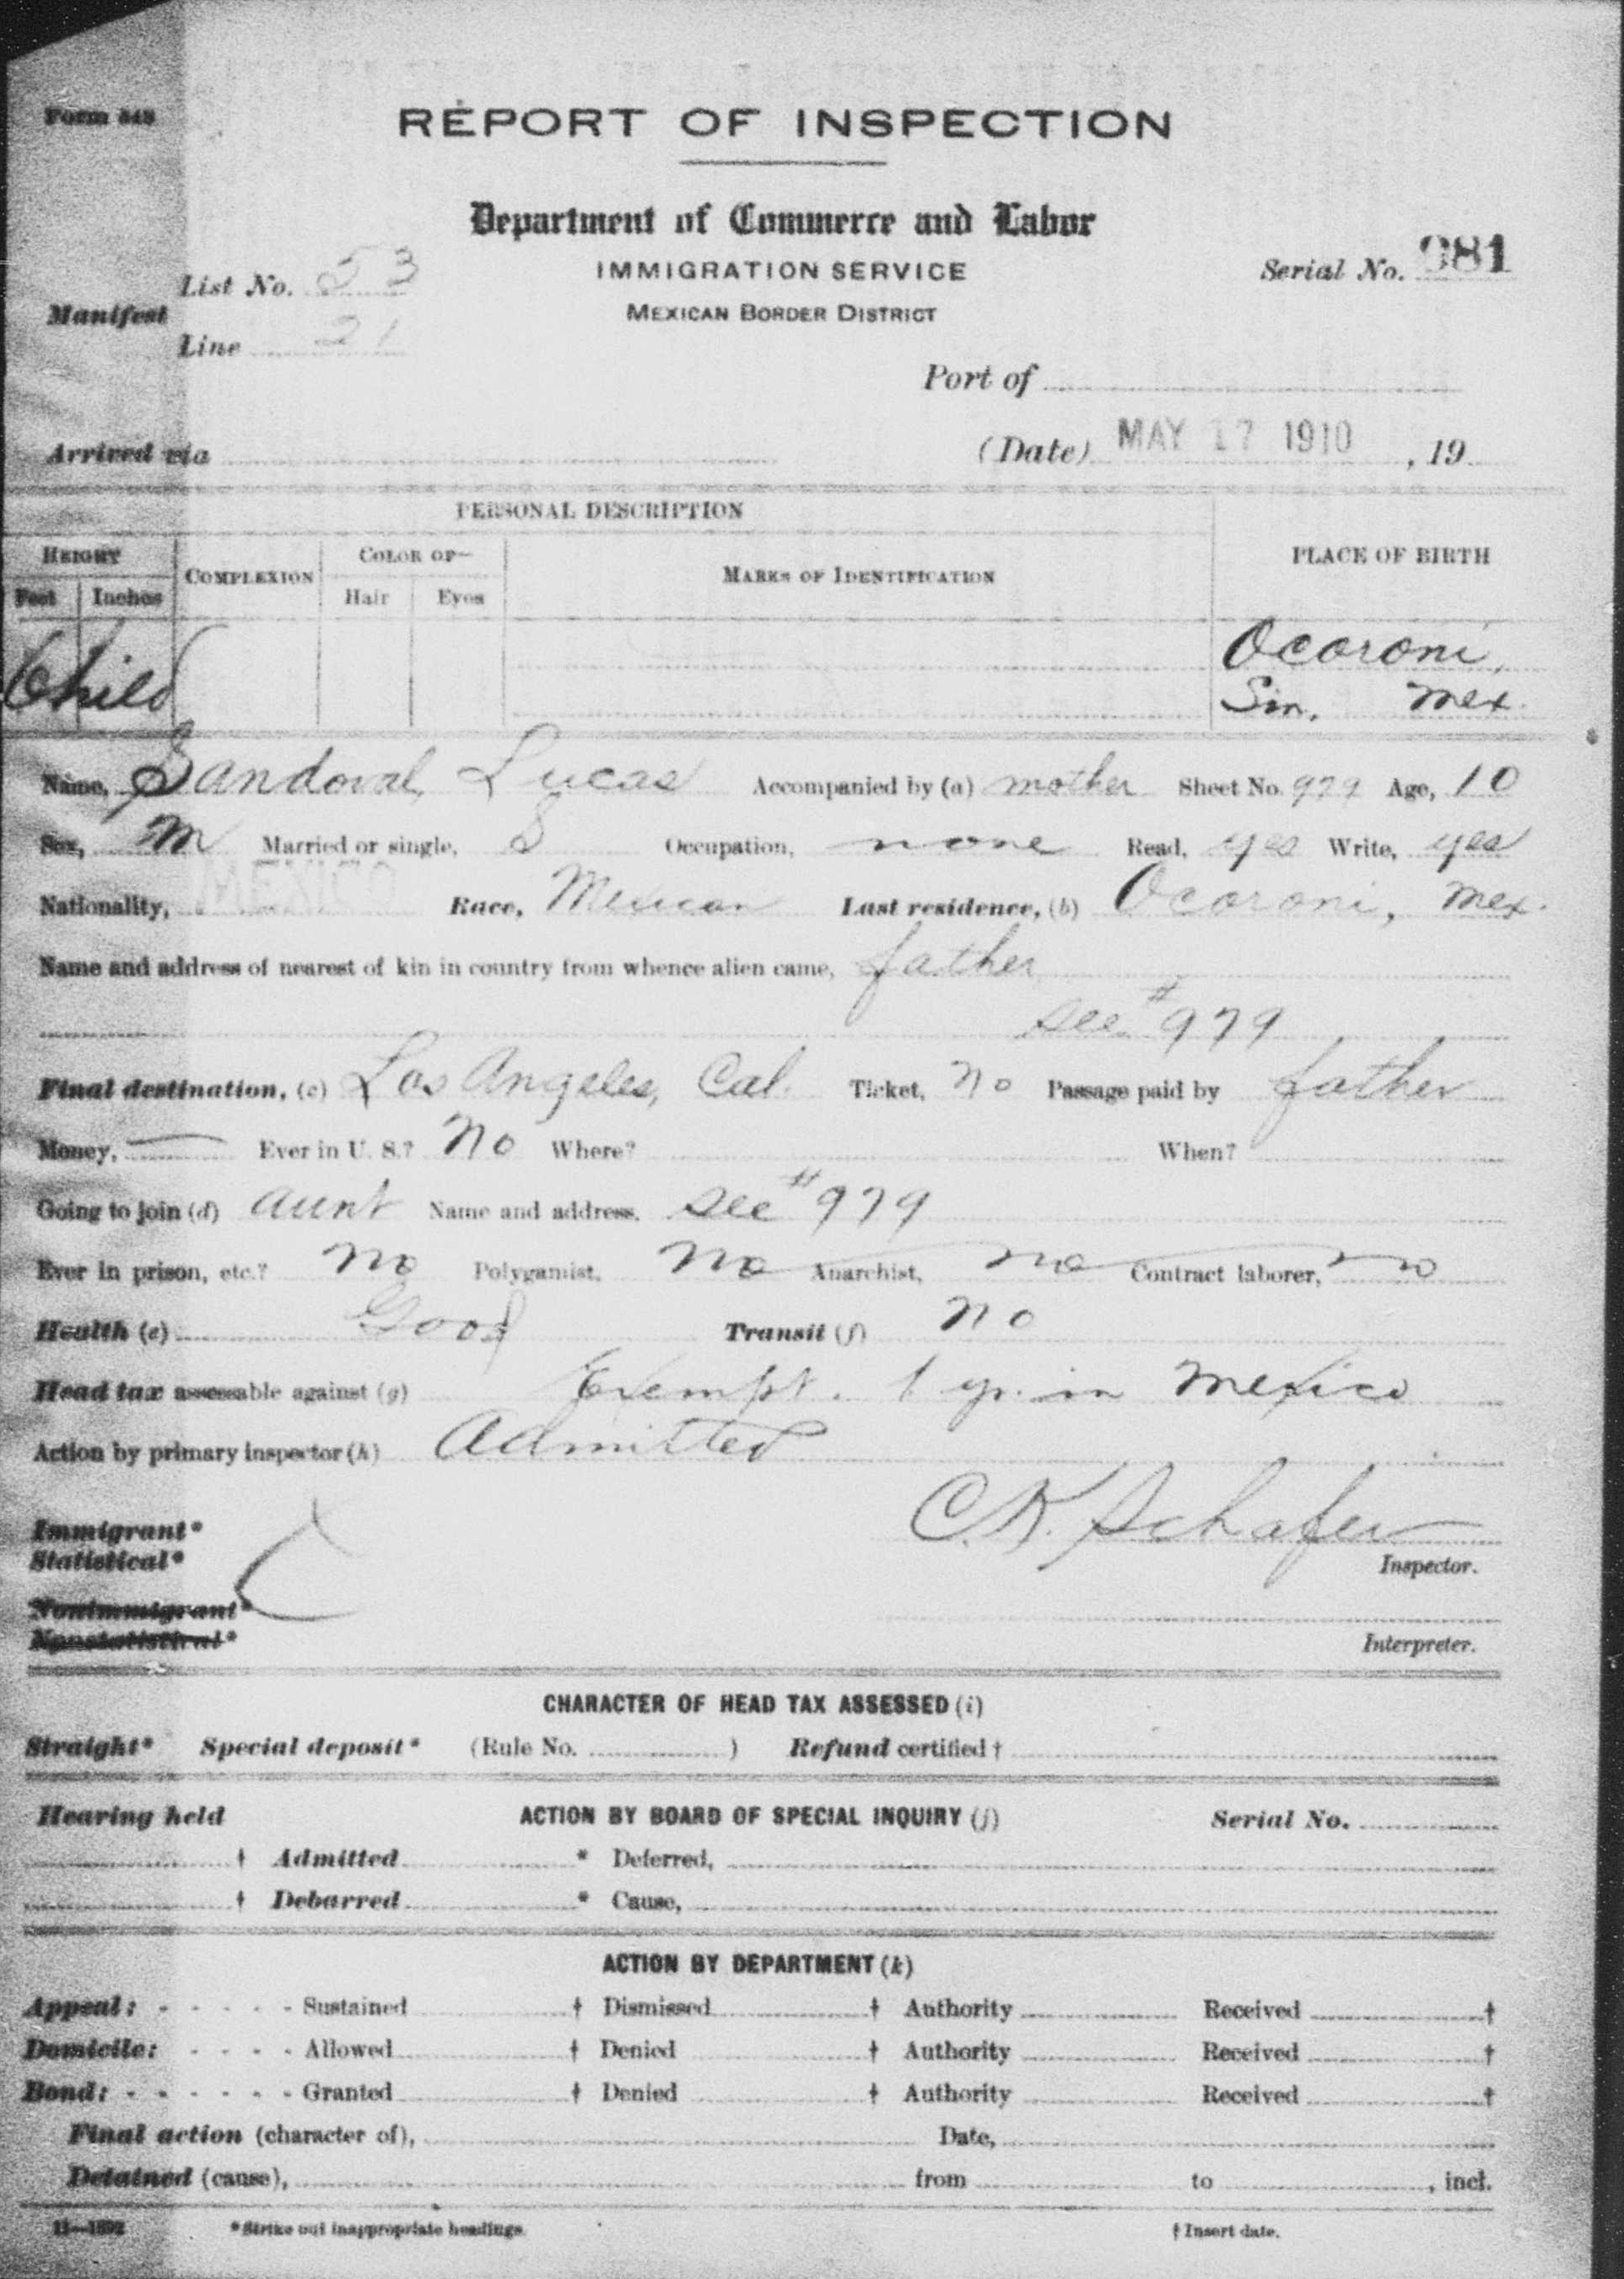 Form 548
REPORT OF INSPECTION
Department of Commerce and Labor
IMMIGRATION SERVICE
MEXICAN BORDER DISTRICT
Serial No. 981
Manifest
List No. 53
Line 21
Port of
Arrived via
(Date) MAY 17 1910, 19
PERSONAL DESCRIPTION
PLACE OF BIRTH
HEIGHT
COMPLEXION
COLOR OF—
MARKS OF IDENTIFICATION
Feet Inches Hair Eyes
Child
Ocoroni,
Sin. Mex.
Name, Sandoval, Lucas Accompanied by (a) mother Sheet No. 979 Age, 10
Sex, M Married or single, S Occupation, none Read, yes Write, yes
Nationality, MEXICO Race, Mexican Last residence, (b) Ocoroni, Mex.
Name and address of nearest of kin in country from whence alien came, father
see #979
Final destination, (c) Los Angeles, Cal. Ticket, No Passage paid by father
Money, — Ever in U. S.? No Where? When?
Going to join (d) aunt Name and address, see #979
Ever in prison, etc.? no Polygamist, no Anarchist, no Contract laborer, no
Health (e) Good Transit (f) no
Head tax assessable against (g) Exempt. 1 yr. in Mexico
Action by primary inspector (h) Admitted
C. K. Schafer
Inspector.
Immigrant*
Statistical*
Nonimmigrant*
Nonstatistical*
Interpreter.
CHARACTER OF HEAD TAX ASSESSED (i)
Straight* Special deposit* (Rule No. ) Refund certified †
Hearing held ACTION BY BOARD OF SPECIAL INQUIRY (j) Serial No.
† Admitted * Deferred,
† Debarred * Cause,
ACTION BY DEPARTMENT (k)
Appeal: - - - - - Sustained † Dismissed † Authority Received †
Domicile: - - - - Allowed † Denied † Authority Received †
Bond: - - - - - - Granted † Denied † Authority Received †
Final action (character of), Date,
Detained (cause), from to , incl.
11—1892 *Strike out inappropriate headings. † Insert date.